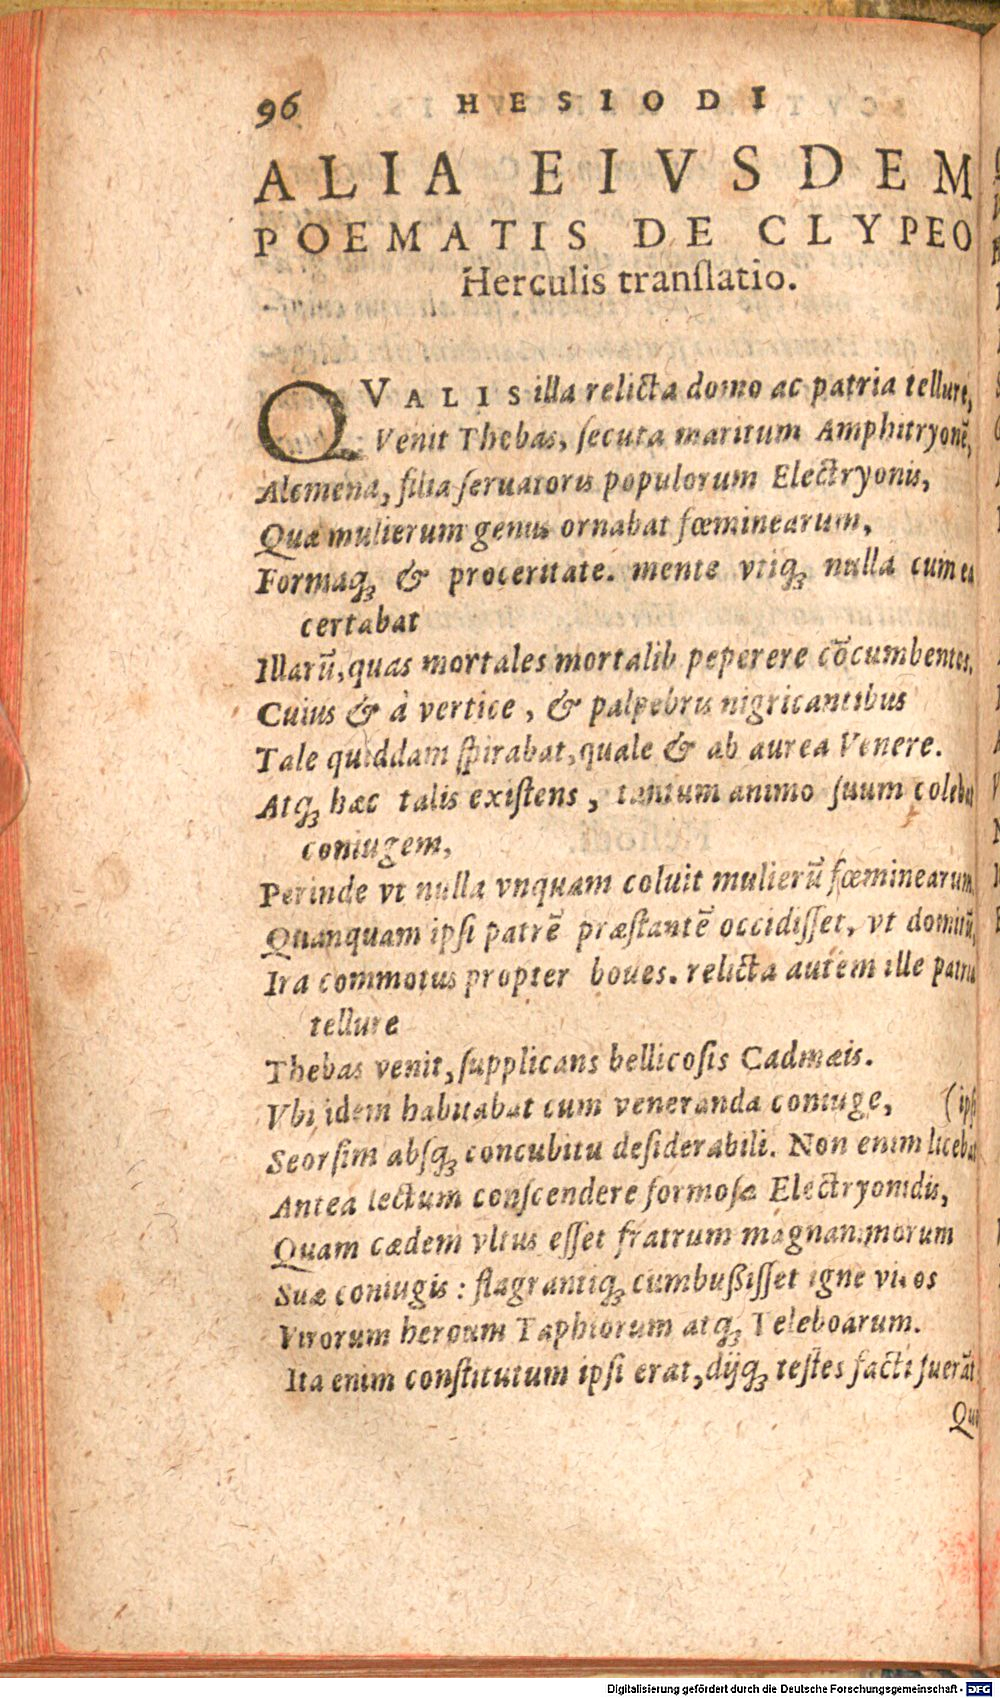 96 HESIODI
ALIA EIVSDEM
POEMATIS DE CLYPEO
Herculis tranſlatio.
QVALIS illa relicta domo ac patria tellure,
Venit Thebas, ſecuta maritum Amphitryonẽ,
Alcmena, filia ſeruatoris populorum Electryonis,
Quæ mulierum genus ornabat fœminearum,
Formaq́ꝫ & proceritate. mente vtiqꝫ nulla cum ea
certabat
Illarũ, quas mortales mortalib peperere cõcumbentes.
Cuius & à vertice, & palpebris nigricantibus
Tale quiddam ſpirabat, quale & ab aurea Venere.
Atqꝫ hæc talis exiſtens, tantum animo ſuum colebat
coniugem,
Perinde vt nulla vnquam coluit mulierũ fœminearum,
Quanquam ipſi patrẽ præſtantẽ occidiſſet, vt domitũ,
Ira commotus propter boues. relicta autem ille patria
tellure
Thebas venit, ſupplicans bellicoſis Cadmæis.
Vbi idem habitabat cum veneranda coniuge, (ipſi
Seorſim abſqꝫ concubitu deſiderabili. Non enim licebat
Antea lectum conſcendere formoſæ Electryonidis,
Quam cædem vltus eſſet fratrum magnanimorum
Suæ coniugis: flagrantiqꝫ cumbußiſſet igne vicos
Virorum heroum Taphiorum atqꝫ Teleboarum.
Ita enim conſtitutum ipſi erat, dijqꝫ teſtes facti fuerãt
Quo
Digitalisierung gefördert durch die Deutsche Forschungsgemeinschaft - DFG